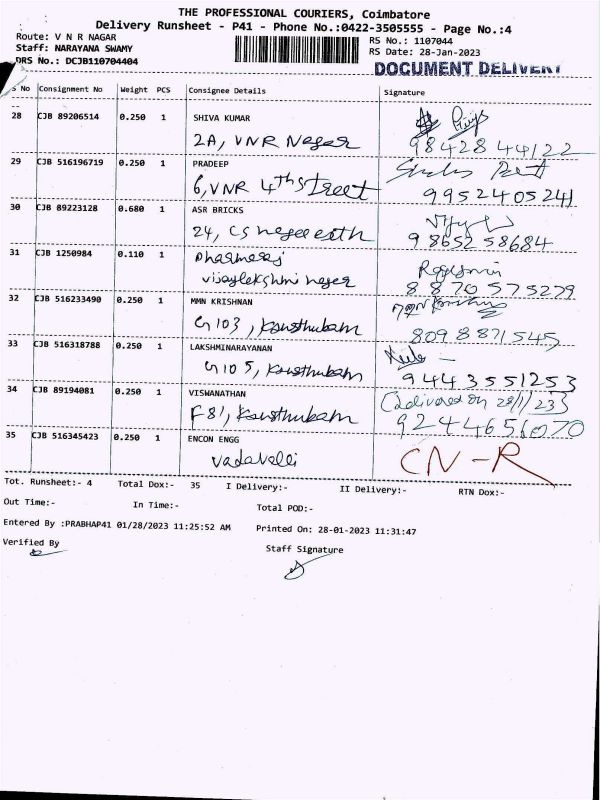 THE PROFESSIONAL COURIERS, Coimbatore
Delivery Runsheet - P41 - Phone No.:0422-3505555 - Page No.:4
Route: V N R NAGAR
RS No.: 1107044
Staff: NARAYANA SWAMY
RS Date: 28-Jan-2023
DRS No.: DCJB110704404
DOCUMENT DELIVERY
S No Consignment No Weight PCS Consignee Details Signature
28 CJB 89206514 0.250 1 SHIVA KUMAR
2A, VNR Nagar 98428 44122
29 CJB 516196719 0.250 1 PRADEEP
6, VNR 4th Street 9952405241
30 CJB 89223128 0.680 1 ASR BRICKS
24, CS 9865258684
31 CJB 1250984 0.110 1 Dharmaraj
vijaylekshmi nagar 8870575279
32 CJB 516233490 0.250 1 MMN KRISHNAN
G103, Kousthubam 8098871545
33 CJB 516318788 0.250 1 LAKSHMINARAYANAN
G105, Kousthubam 94435 51253
34 CJB 89194081 0.250 1 VISWANATHAN (delivered on 28/1/23)
F81, Kousthubam 9244656070
35 CJB 516345423 0.250 1 ENCON ENGG
Vadavalli CN-R
Tot. Runsheet:- 4 Total Dox:- 35 I Delivery:- II Delivery:- RTN Dox:-
Out Time:- In Time:- Total POD:-
Entered By :PRABHAP41 01/28/2023 11:25:52 AM Printed On: 28-01-2023 11:31:47
Verified By Staff Signature